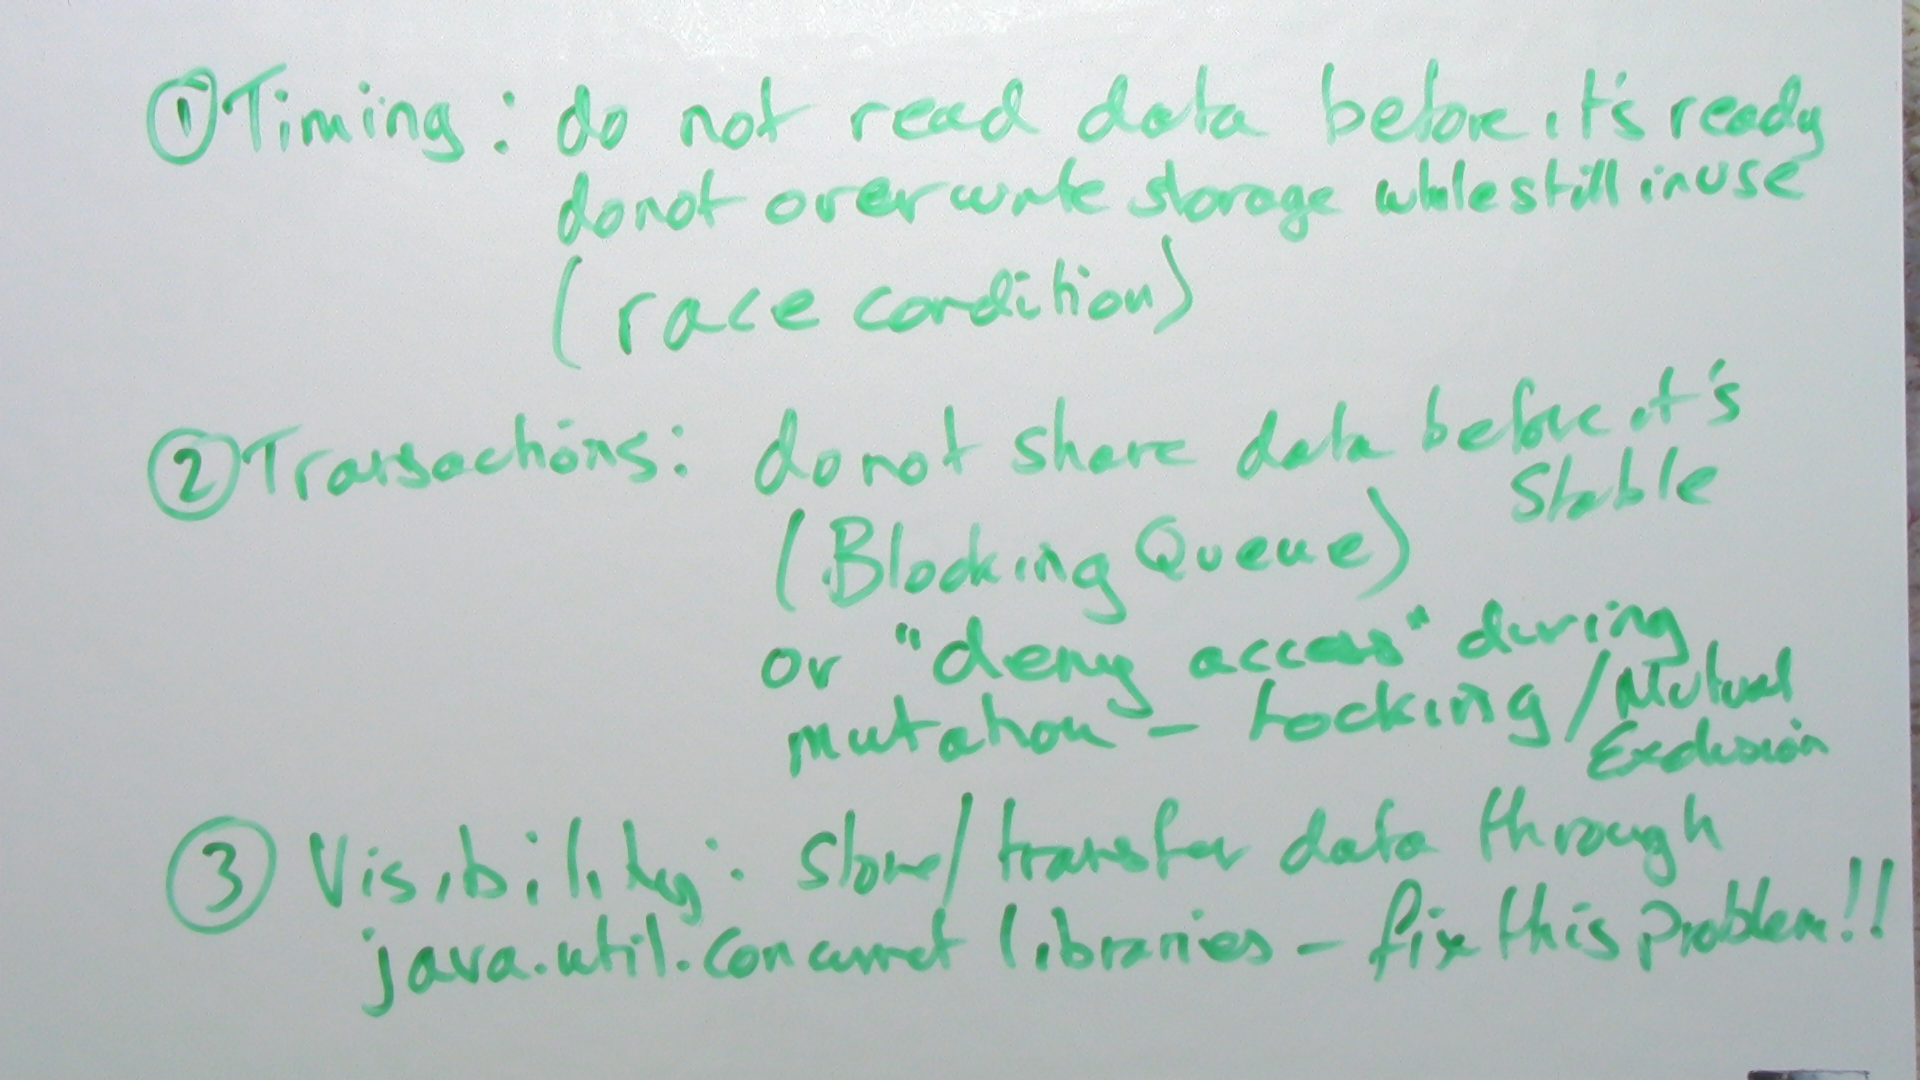 ① Timing: do not read data before it's ready
do not overwrite storage while still in use
(race condition)
② Transactions: do not share data before it's
stable
(Blocking Queue)
or "deny access" during
mutation - Locking / Mutual
Exclusion
③ Visibility: Store/transfer data through
java.util.concurrent libraries - fix this problem!!